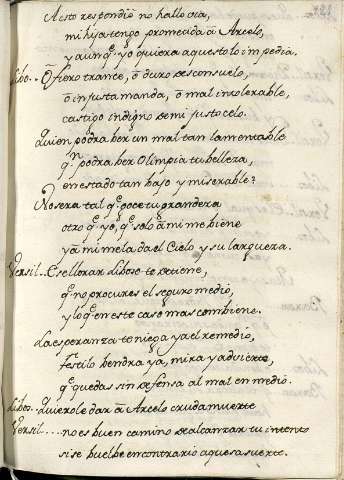 A esto respondiò: no hallo via,
mi hija tengo prometida â Arcelo,
y aunq.e yo quiera aquesto lo impedia.
Libo... ô fiero trance, ô duro desconsuelo,
ô injusta manda, ô mal intolerable,
castigo indigno de mi justo celo.
Quien podra ber un mal tan lamentable
q.n podra ber Olimpia tu belleza,
en estado tan bajo y miserable?
No sera tal q.e goce tu grandeza
otro q.e yo, q.e solo â mi me biene
y â mi me la da el Cielo y su largueza.
Versil... Ese llorar Liboso te detiene,
q.e no procures el seguro medio,
y lo q.e en este caso mas combiene.
La esperanza te niega ya el remedio,
Festilo bendra ya, mira y advierte,
q.e quedas sin defensa al mal en medio.
Libo.. Quierole dar â Arcelo cruda muerte
Versil.... no es buen camino de alcanzar tu intento
si se buelbe en contrario aquesa suerte.